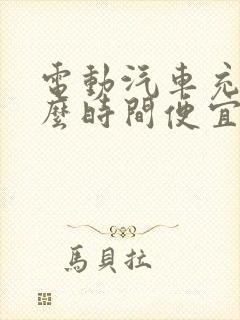 電動汽車充
麼時間便宜
馬貝拉